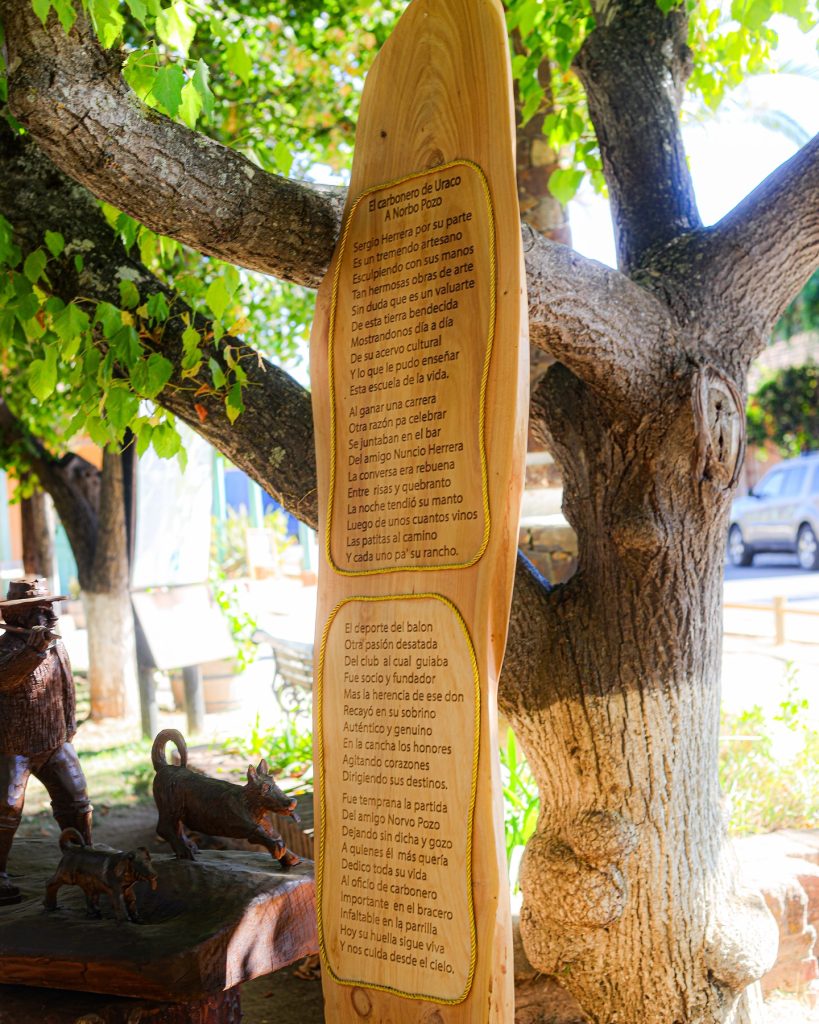 El carbonero de Uraco
A Norbo Pozo
Sergio Herrera por su parte
Es un tremendo artesano
Esculpiendo con sus manos
Tan hermosas obras de arte
Sin duda que es un valuarte
De esta tierra bendecida
Mostrandonos día a día
De su acervo cultural
Y lo que le pudo enseñar
Esta escuela de la vida.
Al ganar una carrera
Otra razón pa celebrar
Se juntaban en el bar
Del amigo Nuncio Herrera
La conversa era rebuena
Entre risas y quebranto
La noche tendió su manto
Luego de unos cuantos vinos
Las patitas al camino
Y cada uno pa' su rancho.
El deporte del balon
Otra pasión desatada
Del club al cual guiaba
Fue socio y fundador
Mas la herencia de ese don
Recayó en su sobrino
Auténtico y genuino
En la cancha los honores
Agitando corazones
Dirigiendo sus destinos.
Fue temprana la partida
Del amigo Norvo Pozo
Dejando sin dicha y gozo
A quienes él más quería
Dedico toda su vida
Al oficio de carbonero
Importante en el bracero
Infaltable en la parrilla
Hoy su huella sigue viva
Y nos cuida desde el cielo.